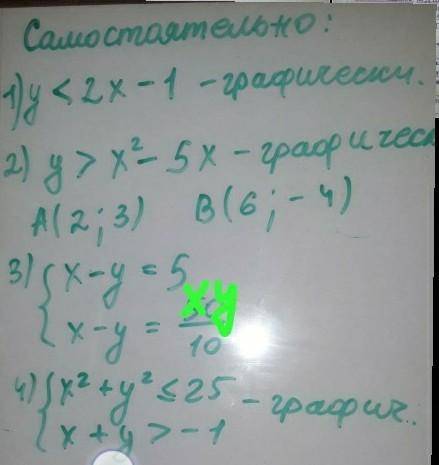 Самостоятельно:
1) y < 2x - 1 - графически.
2) y > x² - 5x - графическ
A(2; 3) B(6; -4)
3) { x - y = 5
x - y = xy/10
4) { x² + y² ≤ 25 - графич.
x + y > -1